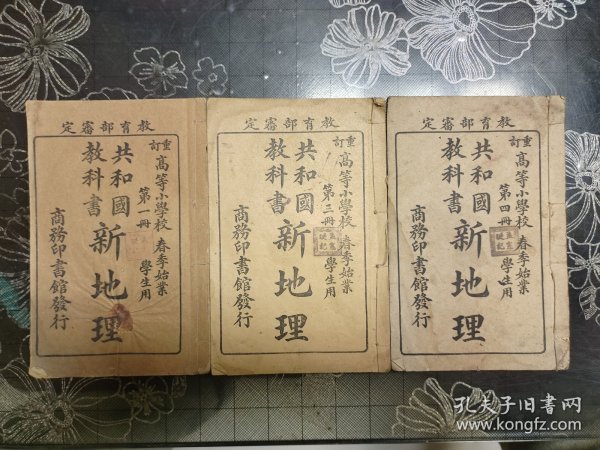 教育部審定
重訂
高等小學校 春季始業
第一冊 學生用
共和國
教科書
新地理
商務印書館發行
教育部審定
重訂
高等小學校 春季始業
第三冊 學生用
共和國
教科書
新地理
商務印書館發行
教育部審定
重訂
高等小學校 春季始業
第四冊 學生用
共和國
教科書
新地理
商務印書館發行
孔夫子旧書网